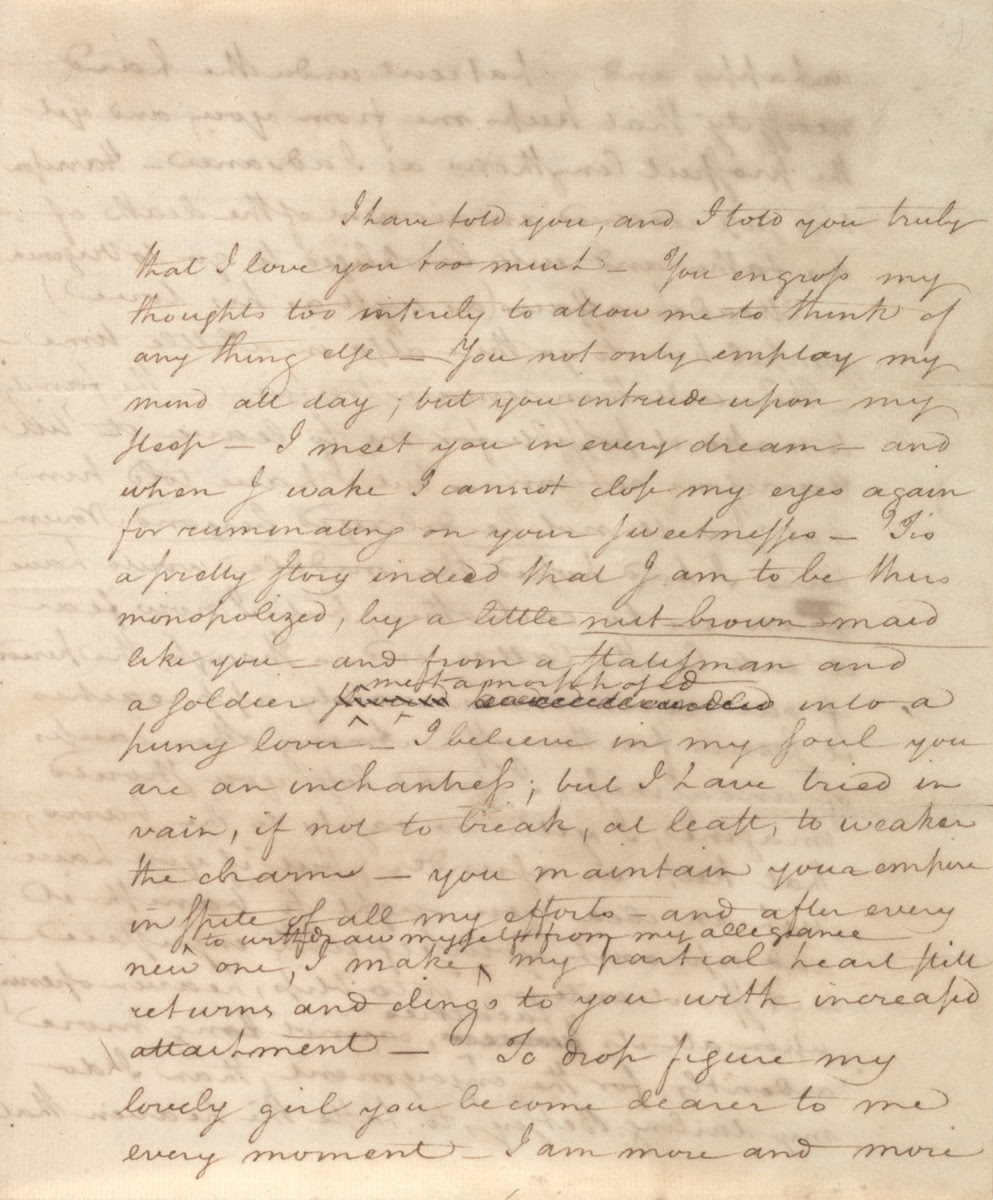 I have told you, and I told you truly
that I love you too much — You engross my
thoughts too intirely to allow me to think of
any thing else — You not only employ my
mind all day; but you intrude upon my
sleep — I meet you in every dream — and
when I wake I cannot close my eyes again
for ruminating on your sweetnesses — 'Tis
a pretty story indeed that I am to be thus
monopolized, by a little nut brown maid
like you — and from a statesman and
metamorphosed
a soldier into a
puny lover — I believe in my soul you
are an inchantress; but I have tried in
vain, if not to break, at least, to weaken
the charm — you maintain your empire
in spite of all my efforts — and after every
to withdraw myself from my allegiance
new one, I make, my partial heart still
returns and clings to you with increased
attachment — To drop figure my
lovely girl you become dearer to me
every moment — I am more and more